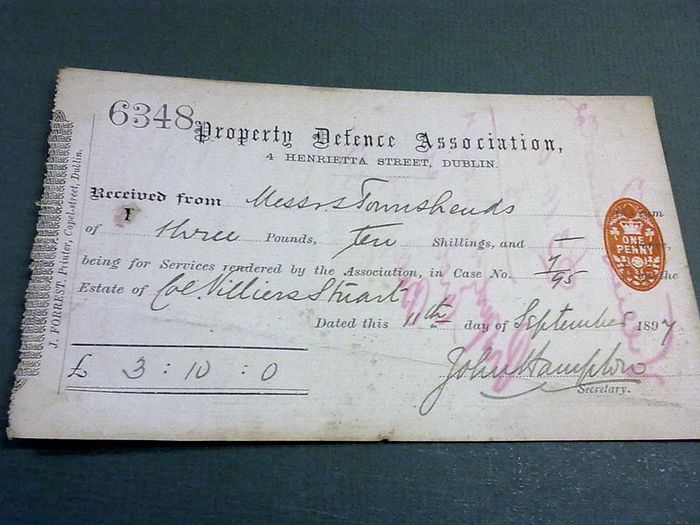 6348
Property Defence Association,
4 HENRIETTA STREET, DUBLIN.
Received from Messrs Townshends
of three Pounds, ten Shillings, and —
being for Services rendered by the Association, in Case No. 7/95 the
Estate of Col. Villiers Stuart
Dated this 11th day of September 1897
£ 3 : 10 : 0
John Hampton
Secretary.
ONE PENNY
J. FORREST, Printer, Capel-street, Dublin.